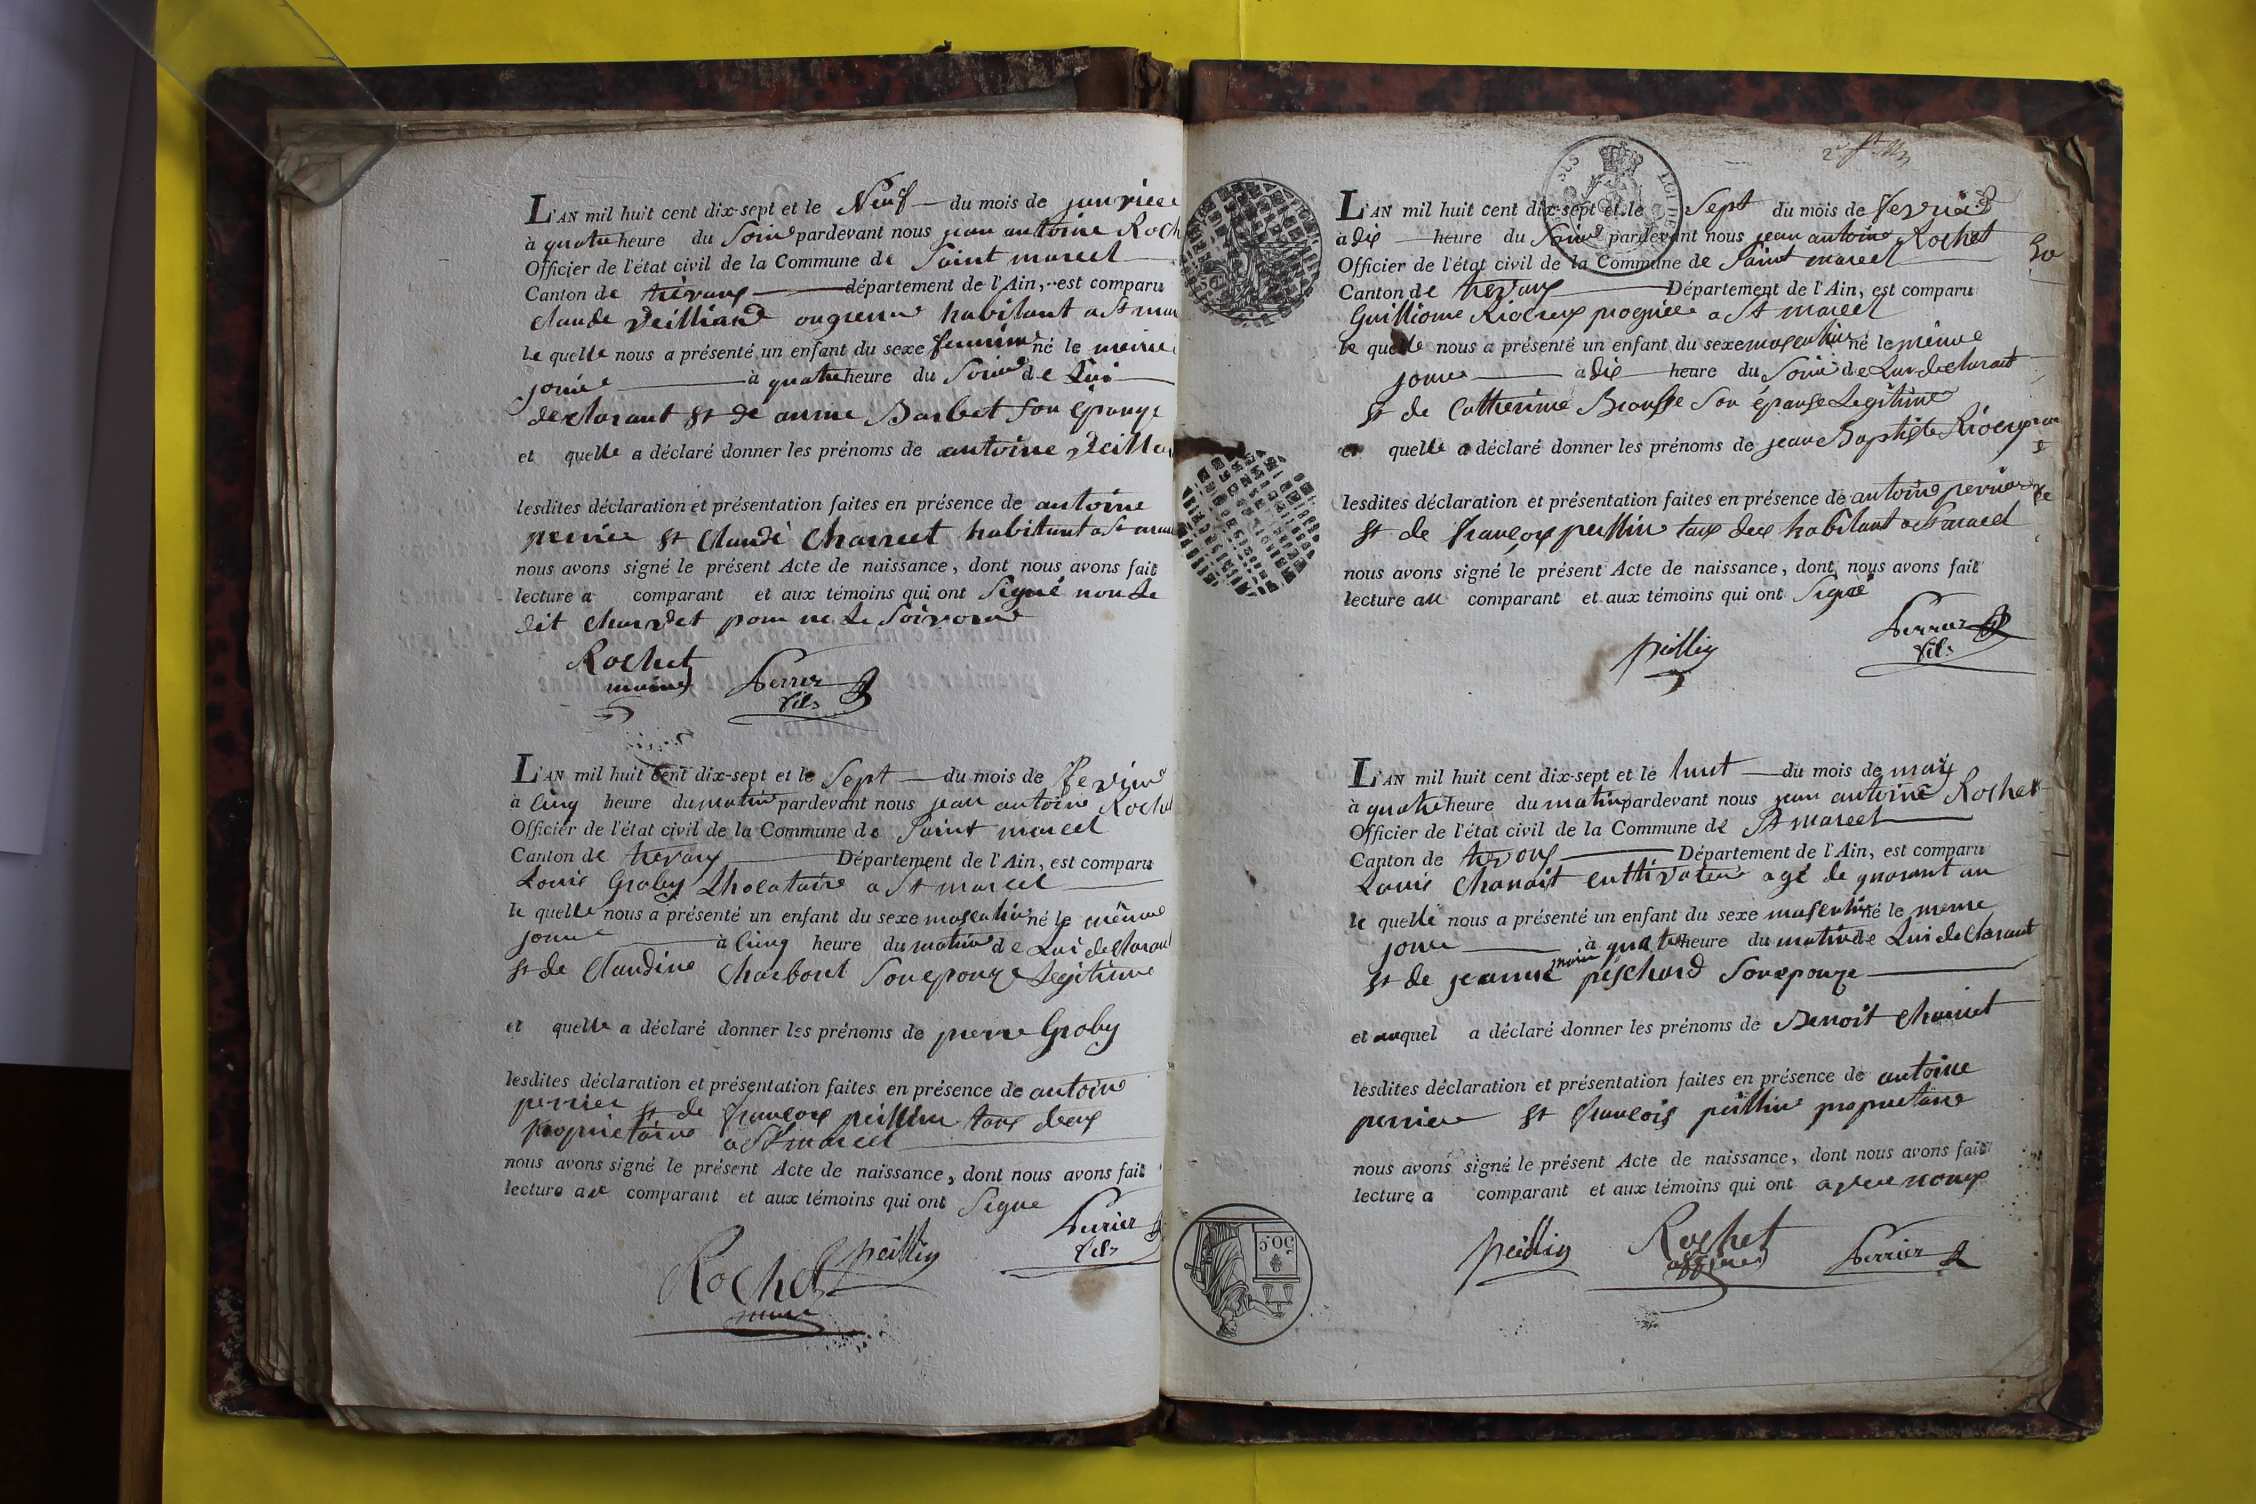 L'AN mil huit cent dix-sept et le Neuf du mois de janviee
à quatre heure du Soir pardevant nous jean antoine Roch
Officier de l'état civil de la Commune de Saint marcel
Canton de trevoux département de l'Ain, est comparu
Claude Veilliand habitant a St mar
le quelle nous a présenté un enfant du sexe feminin né le meme
jour à quatre heure du Soir de Lui
declarant et de anne Barbet son epouze
et quelle a déclaré donner les prénoms de antoine
lesdites déclaration et présentation faites en présence de antoine
perrier et Claude Charret habitant a St
nous avons signé le présent Acte de naissance, dont nous avons fait
lecture a comparant et aux témoins qui ont Signé non Le
dit pour ne Le Savoir
Rochet
maire
Perrier
fils
L'AN mil huit cent dix-sept et le Sept du mois de
à Cinq heure du matin pardevant nous jean antoine Rochet
Officier de l'état civil de la Commune de Saint marcel
Canton de trevoux Département de l'Ain, est comparu
Louis Groby a St marcel
le quelle nous a présenté un enfant du sexe masculin né le même
jour à Cinq heure du matin de Lui declarant
et de Claudine Charbont Son epouze Legitime
et quelle a déclaré donner les prénoms de pierre Groby
lesdites déclaration et présentation faites en présence de antoine
perrier et de françois peillin tous deux
proprietaire a St marcel
nous avons signé le présent Acte de naissance, dont nous avons fait
lecture au comparant et aux témoins qui ont Signe
Perrier
fils
Rochet peillin
maire
L'AN mil huit cent dix-sept et le Sept du mois de fevrier
à dix heure du Soir pardevant nous jean antoine Rochet
50
Officier de l'état civil de la Commune de Saint marcel
Canton de trevoux Département de l'Ain, est comparu
Guilliome a St marcel
le quelle nous a présenté un enfant du sexe masculin né le même
jour à dix heure du Soir de Lui declarant
et de Catherine Brousse Son épouse Legitime
et quelle a déclaré donner les prénoms de jean Baptiste
lesdites déclaration et présentation faites en présence de antoine perrier
et de françois peillin tous deux habitant a St marcel
nous avons signé le présent Acte de naissance, dont nous avons fait
lecture au comparant et aux témoins qui ont Signé
peillin
Perrier
fils
L'AN mil huit cent dix-sept et le huit du mois de
à quatre heure du matin pardevant nous jean antoine Rochet
Officier de l'état civil de la Commune de St marcel
Canton de trevoux Département de l'Ain, est comparu
Louis Charret cultivateur agé de quarant an
le quelle nous a présenté un enfant du sexe masculin né le meme
jour à quatre heure du matin de Lui declarant
et de jeanne marie pischard Son epouze
et auquel a déclaré donner les prénoms de Benoit Charret
lesdites déclaration et présentation faites en présence de antoine
perrier et françois peillin proprietaire
nous avons signé le présent Acte de naissance, dont nous avons fait
lecture a comparant et aux témoins qui ont avec nous
peillin Rochet Perrier
50 C